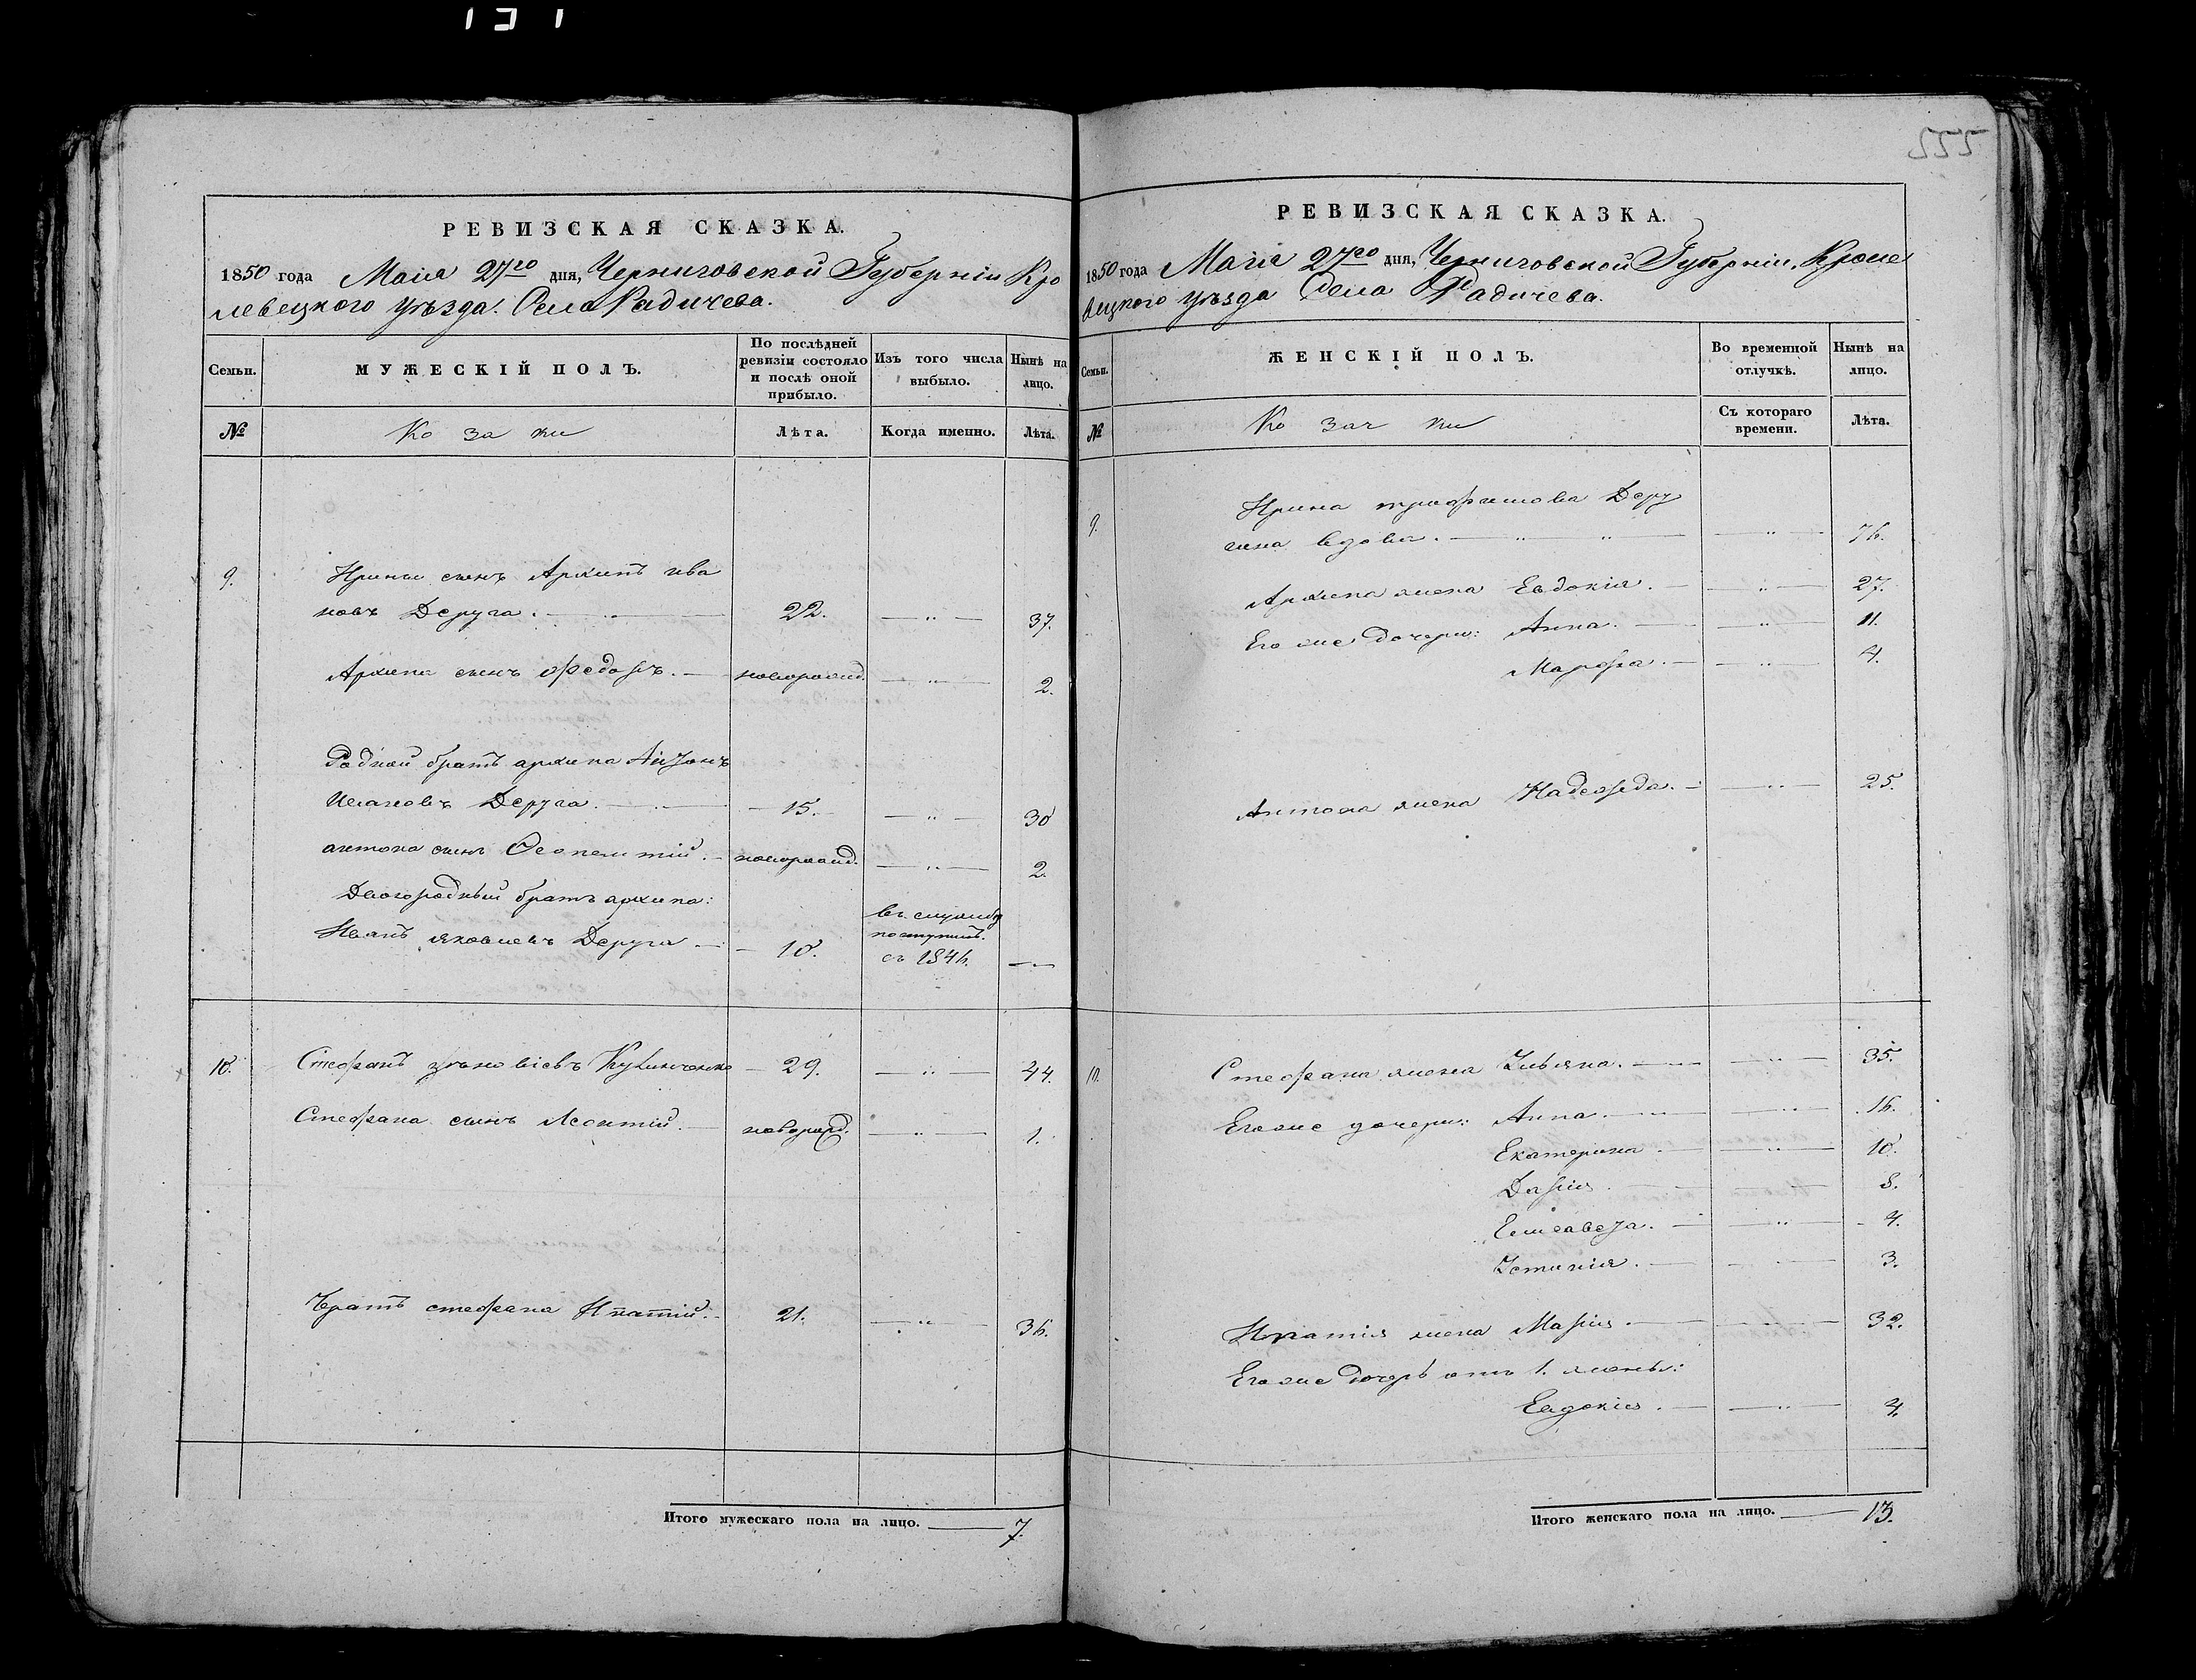 РЕВИЗСКАЯ СКАЗКА.
1850 года Маія 27го дня, Черниговской Губерніи Кро
левецкого уѣзда. Села Радичева.
Семьи.
МУЖЕСКІЙ ПОЛЪ.
По послѣдней ревизіи состояло и послѣ оной прибыло.
Изъ того числа выбыло.
Нынѣ на лицо.
№
Ко за ки
Лѣта.
Когда именно.
Лѣта.
9.
Ирины сынъ Архипъ ива
новъ Деруга. 22. „ 37.
Архипа сынъ Федоръ. новорожд. „ 2.
Родной братъ архипа Антонъ
Ивановъ Деруга. 15. „ 30
антона сынъ новорожд. „ 2.
Двогородный братъ архипа:
въ службу
Иванъ яковлевъ Деруга 10. поступилъ.
съ 1846.
10. Стефанъ Кутинченко 29. „ 44.
Стефана сынъ Леонтій. новорожд. „ 1.
братъ стефана Ипатій. 21. „ 36.
Итого мужескаго пола на лицо. 7.
555
РЕВИЗСКАЯ СКАЗКА.
1850 года Маія 27го дня, Черниговской Губерніи, Кроле
вецкого уѣзда Села Радичева.
Семьи.
ЖЕНСКІЙ ПОЛЪ.
Во временной отлучкѣ.
Нынѣ на лицо.
№
Ко зач ки
Съ котораго времени.
Лѣта.
9.
Ирина трофимова Деру
гина вдова. „ „ „ 76.
Архипа жена Евдокія. „ 27.
Его же дочери: Анна. „ 11.
Марфа. „ 4.
Антона жена Надежда. „ 25.
10. Стефана жена Ульяна. „ 35.
Его же дочери: Анна. „ 16.
Екатерина. „ 10.
Дарія. 8.
Елисавета. „ 4.
Устинія. 3.
Ипатія жена Марія. 32.
Его же дочерь отъ 1. жены:
Евдокія. „ 4.
Итого женскаго пола на лицо. 13.